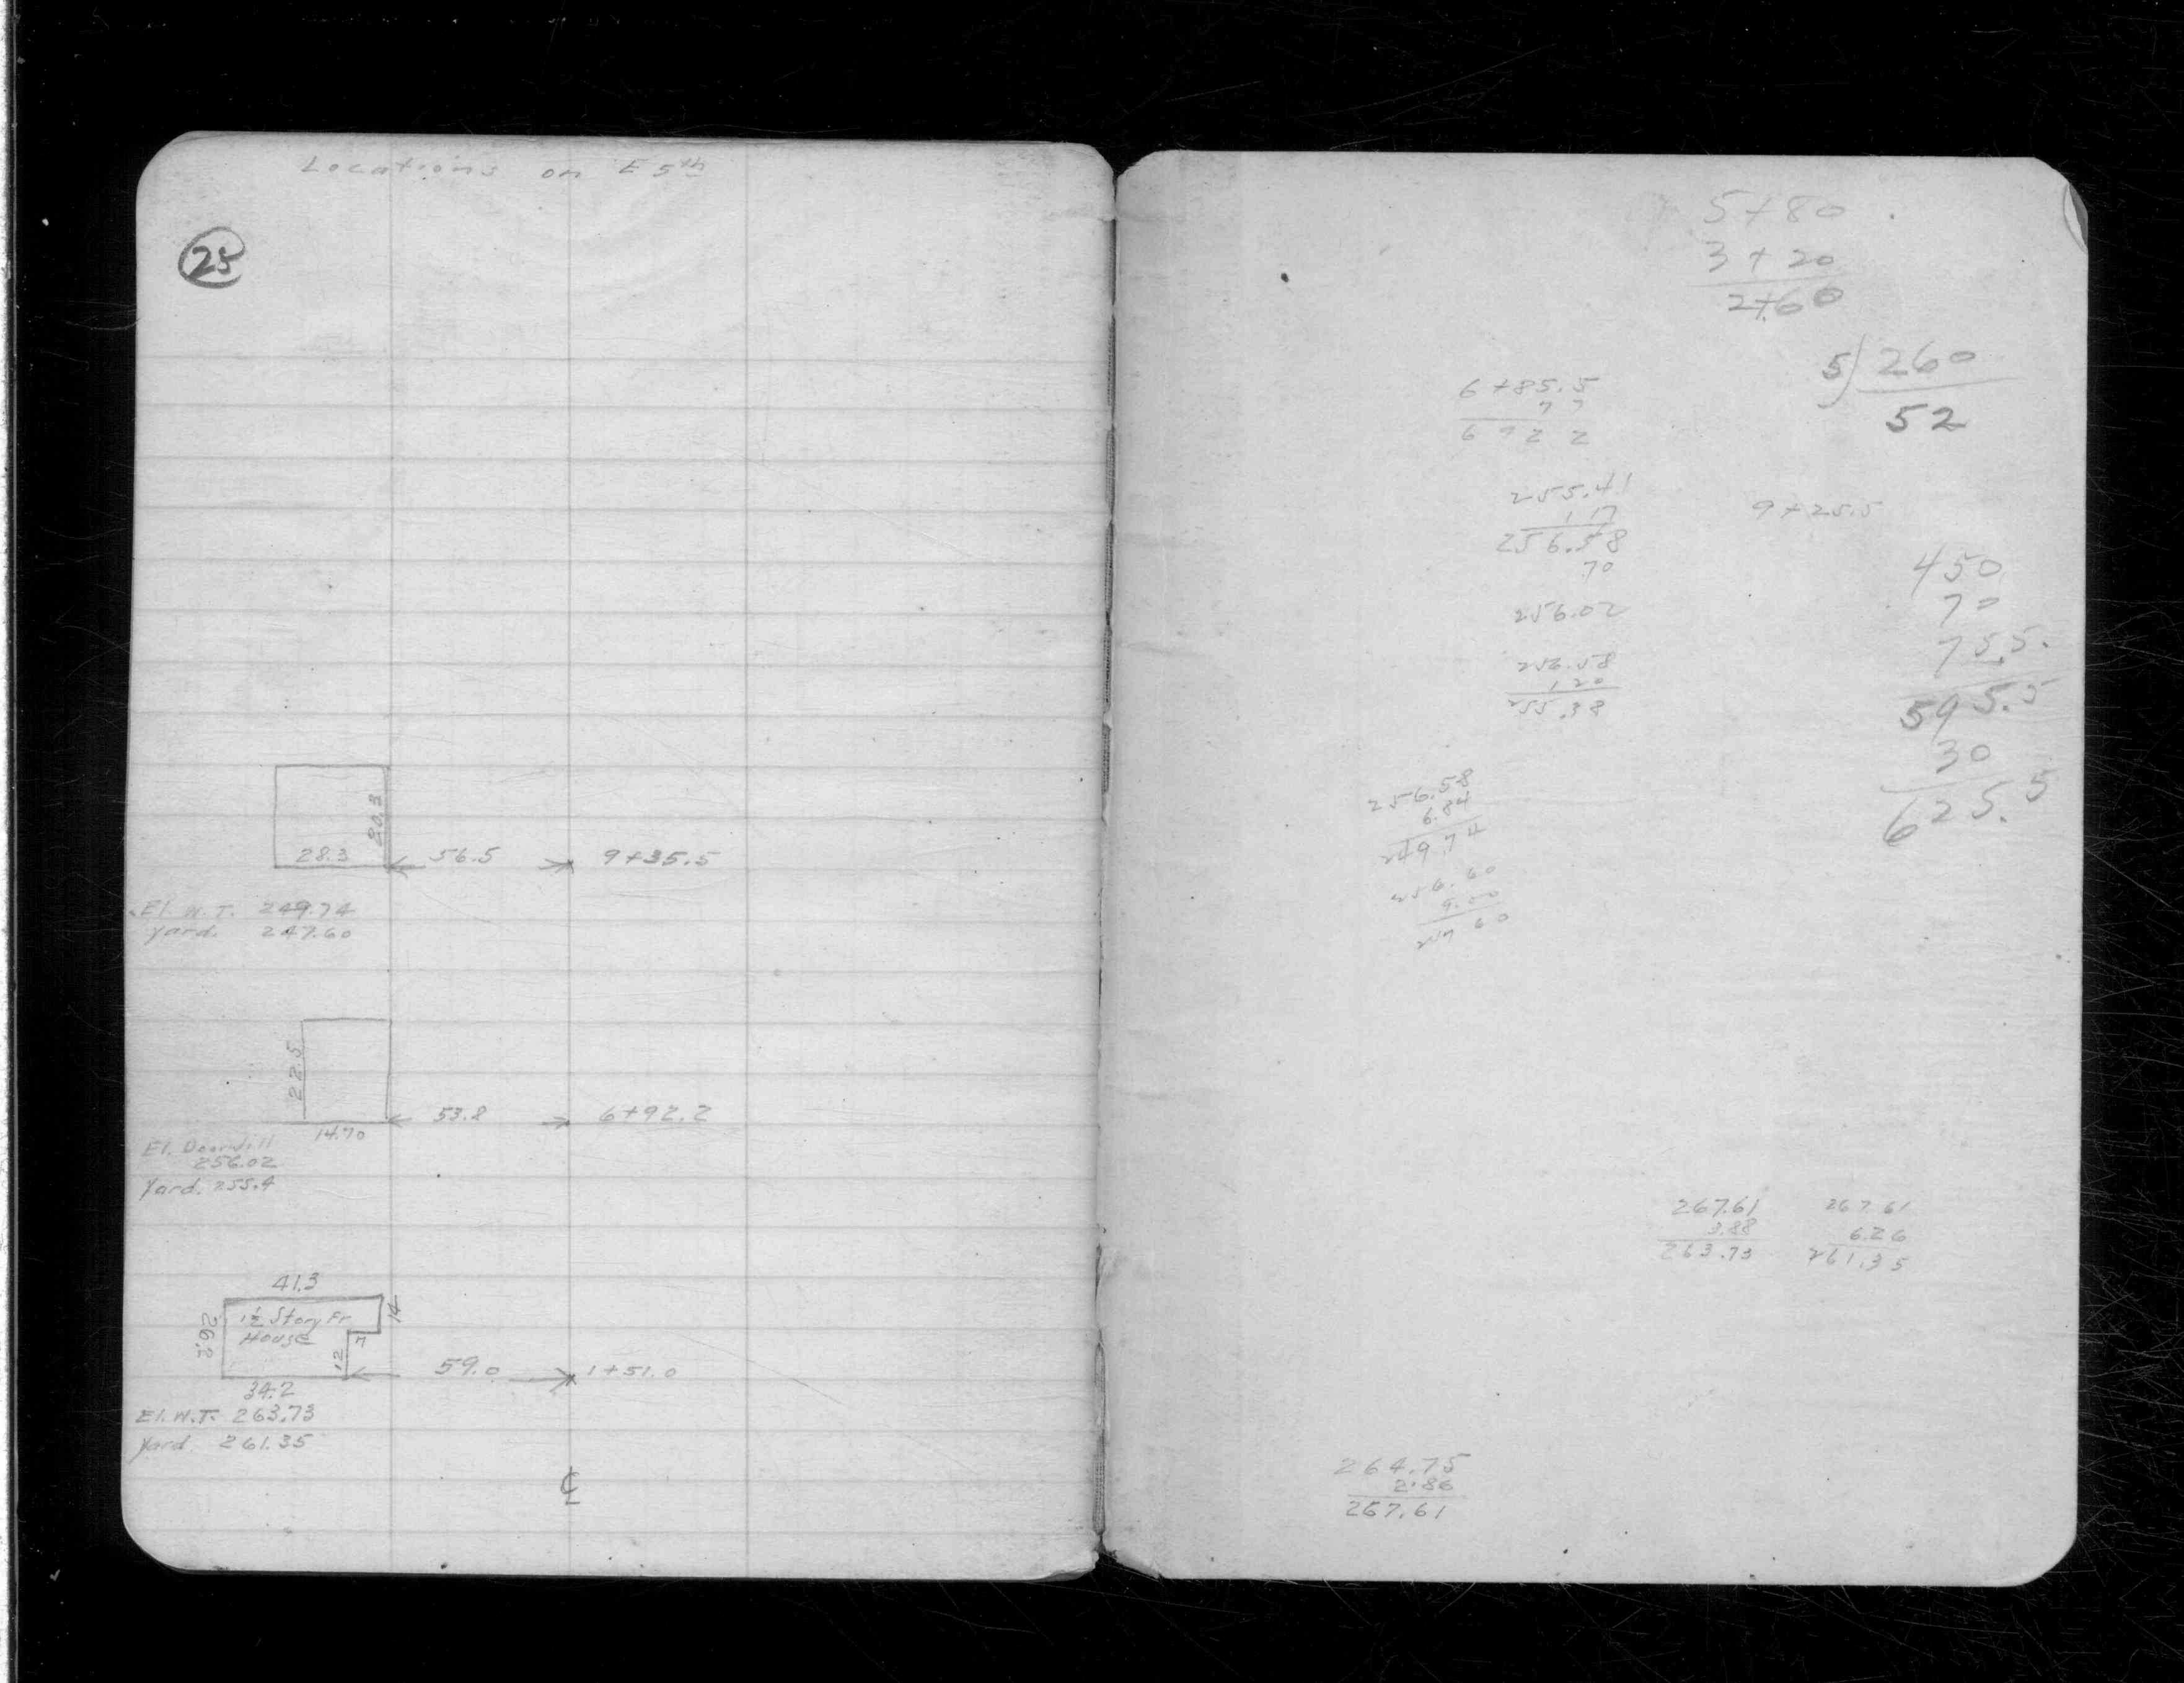 Locations on E 5th
25
20.3
28.3
56.5
9+35.5
El. W.T. 249.74
Yard. 247.60
22.5
53.8
6+92.2
14.70
El. Doorsill
256.02
Yard. 255.4
41.3
14
1½ Story Fr.
House
26.2
7
12
59.0
1+51.0
34.2
El. W.T. 263.73
Yard. 261.35
℄
5+80
3+20
2+60
5) 260
52
6+85.5
6 92 2
255.41
1 17
256.58
70
256.02
9+25.5
450
70
75.5.
595.5
30
625.5
256.58
1 20
255.38
256.58
6.84
249.74
256.60
9.00
247 60
267.61
3.88
263.73
267 61
6.26
261.35
264.75
2.86
267.61